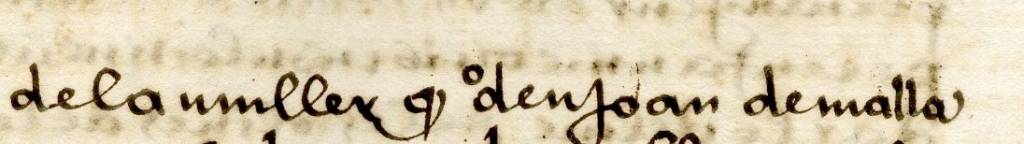 dela muller qº den Joan demalla